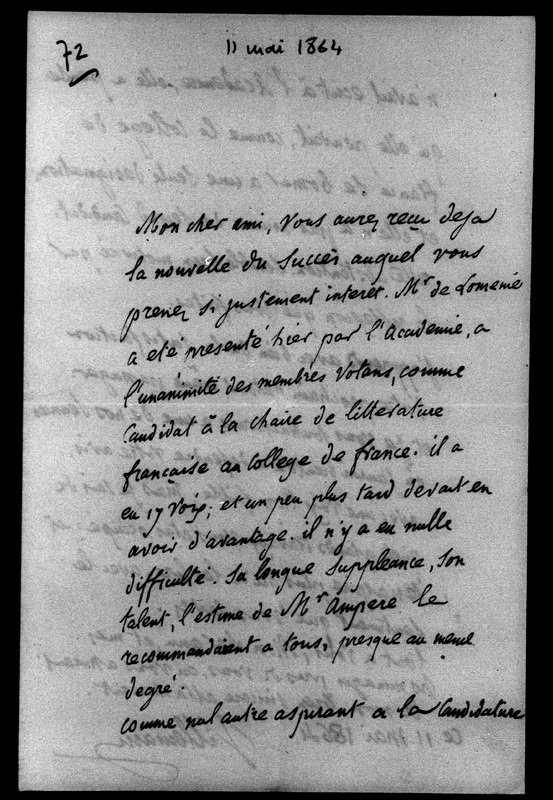 72
11 mai 1864
Mon cher ami, vous aurez reçu deja
la nouvelle du succès auquel vous
prenez si justement interet. Mr de Lomenie
a eté presenté hier par l'Academie, a
l'unanimité des membres votans, comme
Candidat à la chaire de litterature
française au College de france. il a
eu 17 voix; et un peu plus tard devait en
avoir d'avantage. il n'y a eu nulle
difficulté. sa longue suppleance, son
talent, l'estime de Mr Ampere le
recommandaient a tous, presque au meme
degré.
comme nul autre aspirant a la Candidature